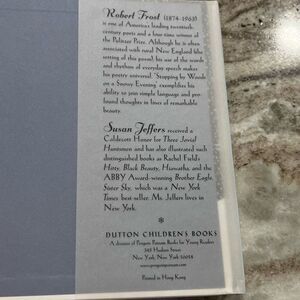 Robert Frost (1874-1963)
is one of America's leading twentieth-
century poets and a four-time winner of
the Pulitzer Prize. Although he is often
associated with rural New England (the
setting of this poem), his use of the words
and rhythm of everyday speech makes
his poetry universal. "Stopping by Woods
on a Snowy Evening" exemplifies his
ability to join simple language and pro-
found thoughts in lines of remarkable
beauty.
Susan Jeffers received a
Caldecott Honor for Three Jovial
Huntsmen and has also illustrated such
distinguished books as Rachel Field's
Hitty, Black Beauty, Hiawatha, and the
ABBY Award-winning Brother Eagle,
Sister Sky, which was a New York
Times best seller. Ms. Jeffers lives in
New York.
DUTTON CHILDREN'S BOOKS
A division of Penguin Putnam Books for Young Readers
345 Hudson Street
New York, New York 10014
www.penguinputnam.com
Printed in Hong Kong